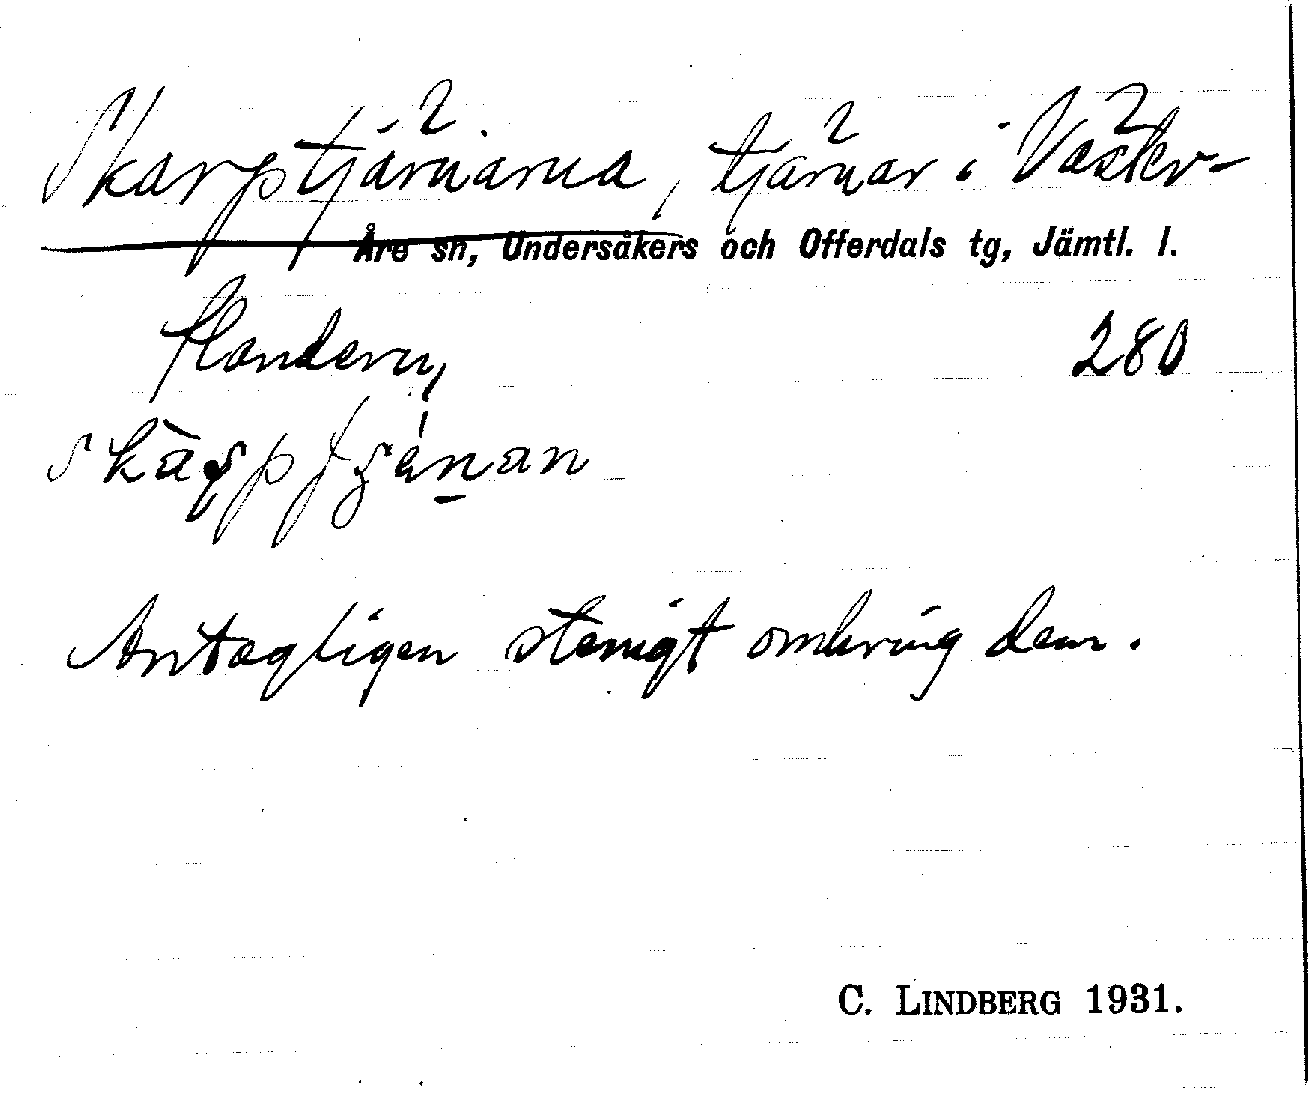 Skarptjärnarna, tjärnar i Väster-
Åre sn, Undersåkers och Offerdals tg, Jämtl. l.
flandern, 280
Antagligen stenigt omkring dem.
C. LINDBERG 1931.